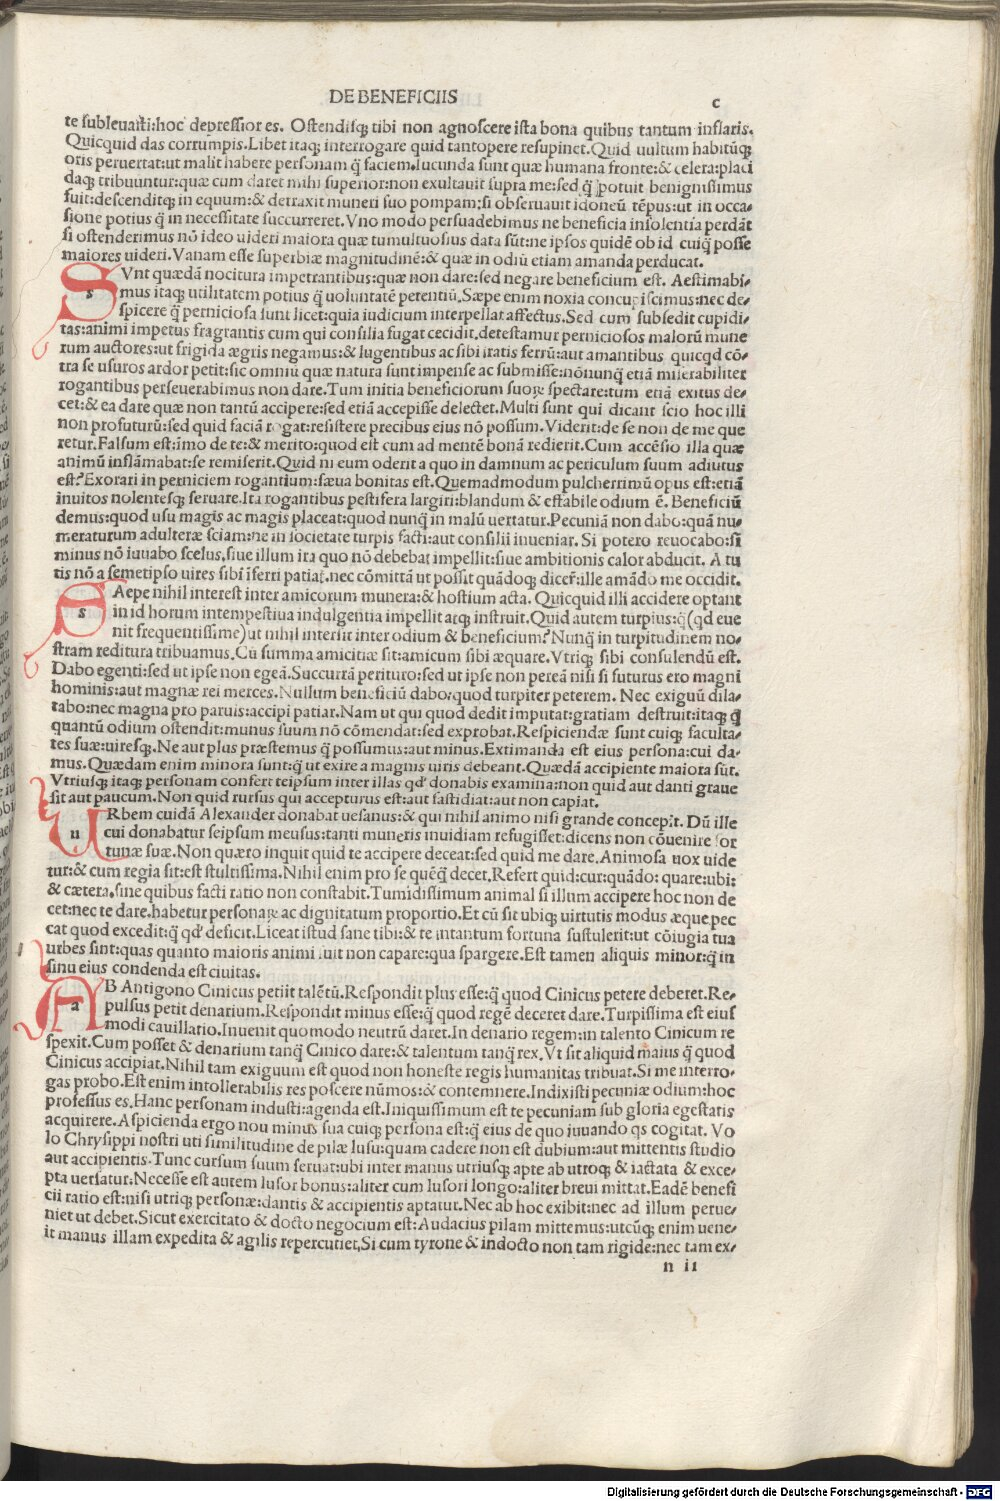 DE BENEFICIIS
c
te subleuasti:hoc depressior es. Ostendisq; tibi non agnoscere ista bona quibus tantum inflaris.
Quicquid das corrumpis.Libet itaq; interrogare quid tantopere resupinet.Quid uultum habitūq;
oris peruertat:ut malit habere personam q̄ faciem.Iucunda sunt quæ humana fronte:& celera:placi
daq; tribuuntur:quæ cum daret mihi superior:non exultauit supra me:sed q̄ potuit benignissimus
fuit:descenditq; in equum:& detraxit muneri suo pompam;si obseruauit idoneū tēpus:ut in occa-
sione potius q̄ in necessitate succurreret.Vno modo persuadebimus ne beneficia insolentia perdāt
si ostenderimus nō ideo uideri maiora quæ tumultuosius data sūt:ne ipsos quidē ob id cuiq̄ posse
maiores uideri. Vanam esse superbiæ magnitudinē:& quæ in odiū etiam amanda perducat.
SVnt quædā nocitura impetrantibus:quæ non dare:sed negare beneficium est. Aestimabi-
s mus itaq; utilitatem potius q̄ uoluntatē petentiū.Sæpe enim noxia concupiscimus:nec de-
spicere q̄ perniciosa sunt licet:quia iudicium interpellat affectus.Sed cum subsedit cupidi-
tas:animi impetus fragrantis cum qui consilia fugat cecidit.detestamur perniciosos malorū mune
rum auctores:ut frigida ægris negamus:& lugentibus ac sibi iratis ferrū:aut amantibus quicqd cō-
tra se usuros ardor petit:sic omniū quæ natura sunt impense ac submisse:nōnunq̄ etiā miserabiliter
rogantibus perseuerabimus non dare.Tum initia beneficiorum suoꝝ spectare:tum etiā exitus de-
cet:& ea dare quæ non tantū accipere:sed etiā accepisse delectet.Multi sunt qui dicant scio hoc illi
non profuturū:sed quid faciā rogat:resistere precibus eius nō possum.Viderit:de se non de me que
retur.Falsum est:īmo de te:& merito:quod est cum ad mentē bonā redierit.Cum accēsio illa quæ
animū inflāmabat:se remiserit.Quid ni eum oderit a quo in damnum ac periculum suum adiutus
est?Exorari in perniciem rogantium:sæua bonitas est.Quemadmodum pulcherrimū opus est:etiā
inuitos nolentesq; seruare.Ita rogantibus pestifera largiri:blandum & effabile odium ē. Beneficiū
demus:quod usu magis ac magis placeat:quod nunq̄ in malū uertatur.Pecuniā non dabo:quā nu-
meraturum adulteræ sciam:ne in societate turpis facti:aut consilii inueniar. Si potero reuocabo:si
minus nō iuuabo scelus,siue illum ira quo nō debebat impellit:siue ambitionis calor abducit. A tu
tis nō a semetipso uires sibi īferri patiaꝛ.nec cōmittā ut possit quādoq; dicer̄:ille amādo me occidit.
SAepe nihil interest inter amicorum munera:& hostium acta. Quicquid illi accidere optant
s in id horum intempestiua indulgentia impellit atq; instruit.Quid autem turpius:q̄(qd eue
nit frequentissime)ut nihil intersit inter odium & beneficium?Nunq̄ in turpitudinem no-
stram reditura tribuamus.Cū summa amicitiæ sit:amicum sibi æquare.Vtriq; sibi consulendū est.
Dabo egenti:sed ut ipse non egeā.Succurrā perituro:sed ut ipse non pereā nisi si futurus ero magni
hominis:aut magnæ rei merces.Nullum beneficiū dabo:quod turpiter peterem. Nec exiguū dila-
tabo:nec magna pro paruis:accipi patiar.Nam ut qui quod dedit imputat:gratiam destruit:itaq; q̄
quantū odium ostendit:munus suum nō cōmendat:sed exprobat.Respiciendæ sunt cuiq; faculta-
tes suæ:uiresq;.Ne aut plus præstemus q̄ possumus:aut minus.Extimanda est eius persona:cui da-
mus.Quædam enim minora sunt:q̄ ut exire a magnis uiris debeant.Quædā accipiente maiora sūt.
Vtriusq; itaq; personam confert teipsum inter illas qd' donabis examina:non quid aut danti graue
sit aut paucum.Non quid rursus qui accepturus est:aut fastidiat:aut non capiat.
VRbem cuidā Alexander donabat uesanus:& qui nihil animo nisi grande concepit. Dū ille
u cui donabatur seipsum mensus:tanti muneris inuidiam refugisset:dicens non cōuenire for
tunæ suæ.Non quæro inquit quid te accipere deceat:sed quid me dare.Animosa uox uide
tur:& cum regia sit:est stultissima.Nihil enim pro se quēq̄ decet.Refert quid:cur:quādo: quare:ubi:
& cætera.sine quibus facti ratio non constabit.Tumidissimum animal si illum accipere hoc non de
cet:nec te dare.habetur personaꝝ ac dignitatum proportio.Et cū sit ubiq; uirtutis modus æque pec
cat quod excedit:q̄ qd' deficit.Liceat istud sane tibi:& te intantum fortuna sustulerit:ut cōiugia tua
urbes sint:quas quanto maioris animi fuit non capare:qua spargere.Est tamen aliquis minor:q̄ in
sinu eius condenda est ciuitas.
AB Antigono Cinicus petiit talētū.Respondit plus esse:q̄ quod Cinicus petere deberet.Re-
a pulsus petit denarium.Respondit minus esse:q̄ quod regē deceret dare.Turpissima est eius
modi cauillatio.Inuenit quo modo neutrū daret.In denario regem:in talento Cinicum re
spexit.Cum posset & denarium tanq̄ Cinico dare:& talentum tanq̄ rex.Vt sit aliquid maius q̄ quod
Cinicus accipiat.Nihil tam exiguum est quod non honeste regis humanitas tribuat.Si me interro-
gas probo.Est enim intollerabilis res poscere nūmos:& contemnere.Indixisti pecuniæ odium:hoc
professus es.Hanc personam industi:agenda est.Iniquissimum est te pecuniam sub gloria egestatis
acquirere.Aspicienda ergo nou minus sua cuiq; persona est:q̄ eius de quo iuuando qs cogitat. Vo
lo Chrysippi nostri uti similitudine de pilæ lusu:quam cadere non est dubium:aut mittentis studio
aut accipientis.Tunc cursum suum seruat:ubi inter manus utriusq; apte ab utroq; & iactata & exce-
pta uersatur.Necesse est autem lusor bonus:aliter cum lusori longo:aliter breui mittat.Eadē benefi
cii ratio est:nisi utriq; personæ:dantis & accipientis aptatut.Nec ab hoc exibit:nec ad illum perue-
niet ut debet.Sicut exercitato & docto negocium est:Audacius pilam mittemus:utcūq; enim uene-
it manus illam expedita & agilis repercutiet.Si cum tyrone & indocto non tam rigide:nec tam ex-
n ii
Digitalisierung gefördert durch die Deutsche Forschungsgemeinschaft - DFG